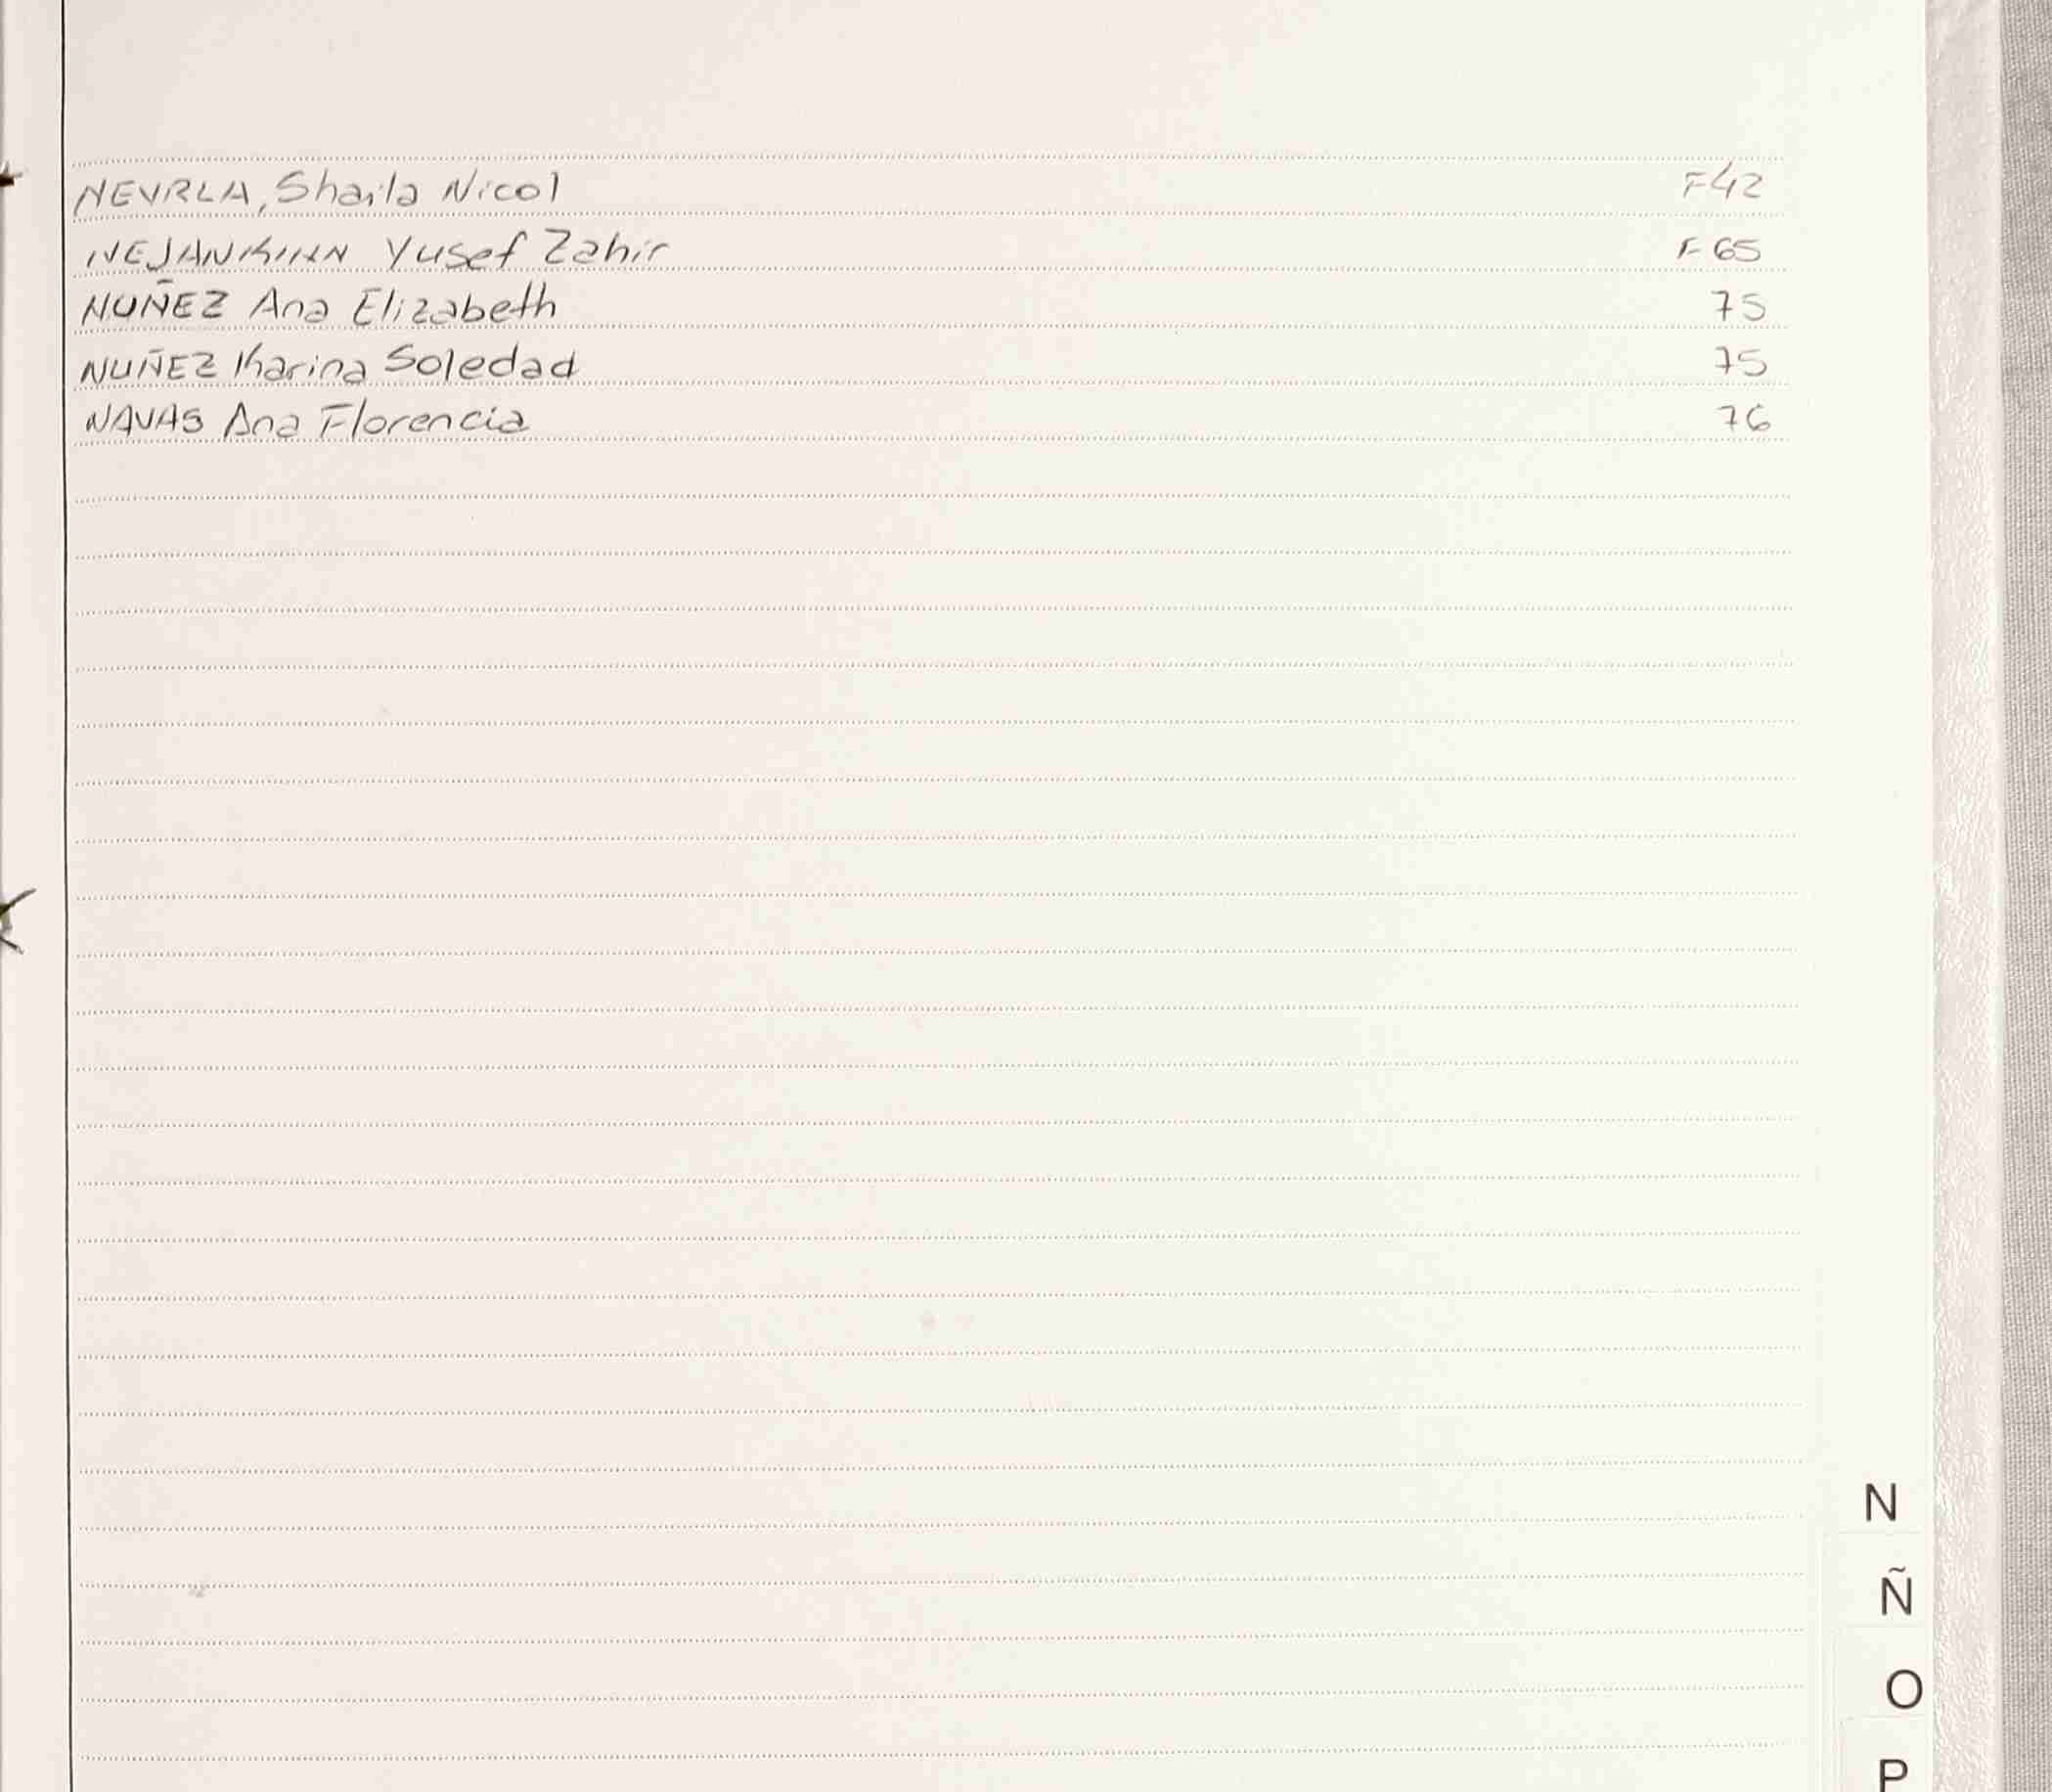 NEVRLA, Shaila Nicol F42
Yusef Zahir F 65
NUÑEZ Ana Elizabeth 75
NUÑEZ Karina Soledad 75
NAVAS Ana Florencia 76
N
Ñ
O
P